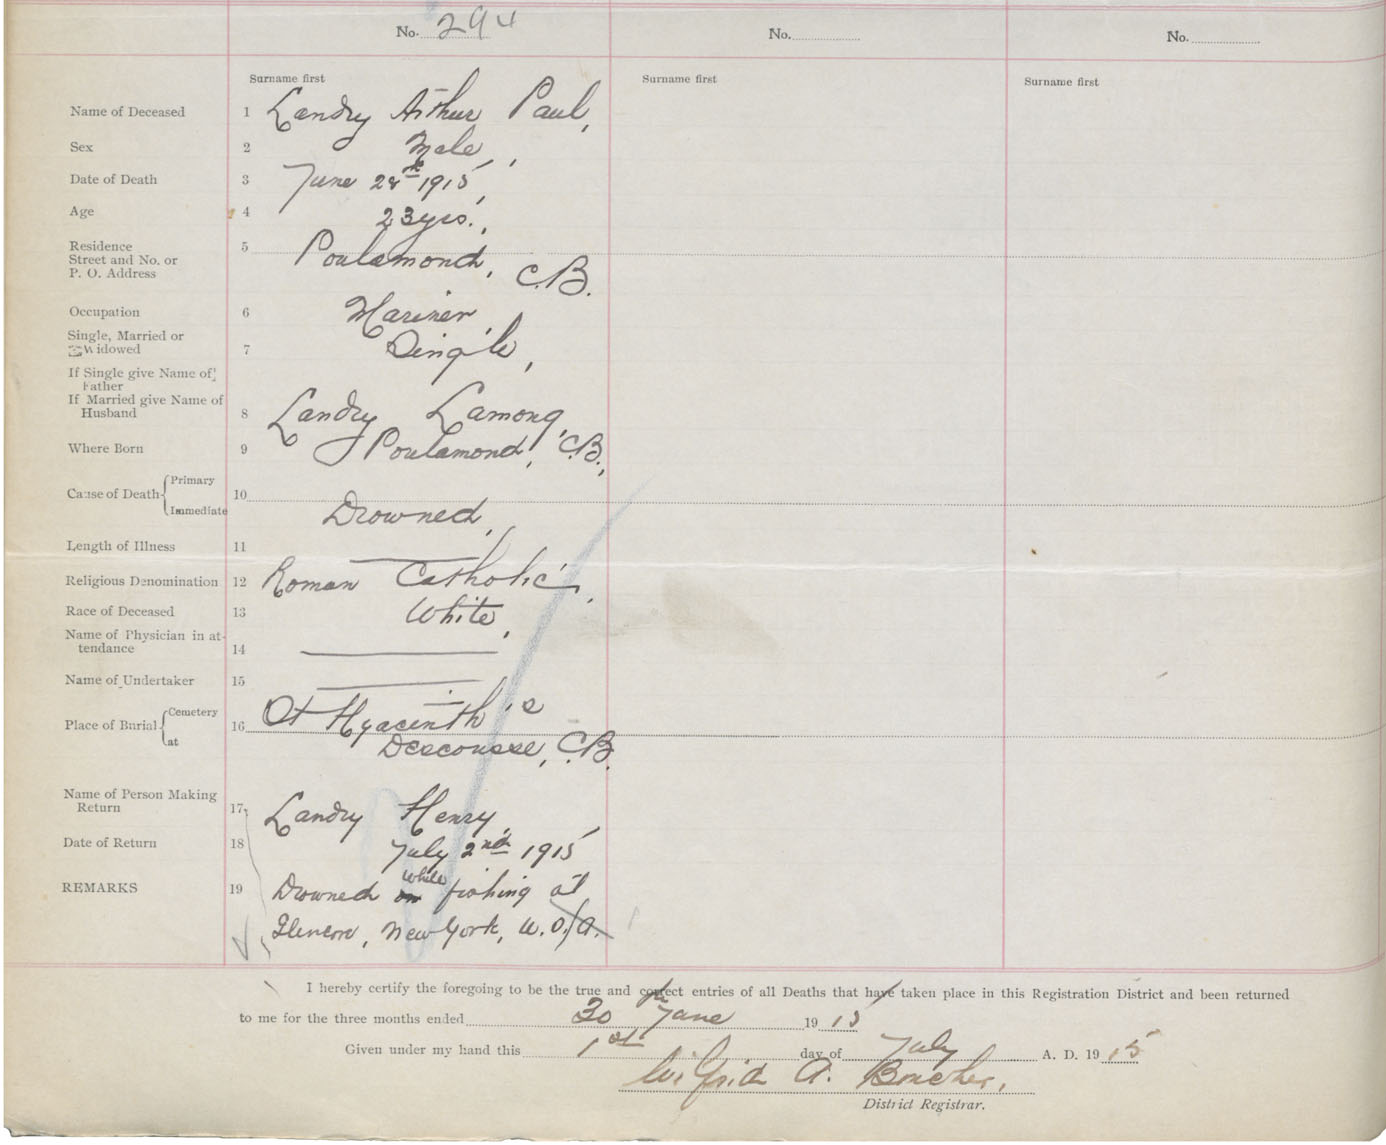 No. 294 No. No.
Surname first Surname first Surname first
Name of Deceased 1 Landry Arthur Paul,
Sex 2 Male,
Date of Death 3 June 28th 1915,
Age 4 23 yrs.,
Residence 5
Street and No. or Poulamond, C.B.
P. O. Address
Occupation 6 Mariner,
Single, Married or
Widowed 7 Single,
If Single give Name of
Father
If Married give Name of
Husband 8 Landry Lamong,
Where Born 9 Poulamond, C.B.,
Cause of Death Primary
10
Immediate Drowned,
Length of Illness 11
Religious Denomination 12 Roman Catholic,
Race of Deceased 13 White,
Name of Physician in at-
tendance 14
Name of Undertaker 15
Place of Burial Cemetery 16 St Hyacinth's
at Descousse, C.B.
Name of Person Making
Return 17 Landry Henry,
Date of Return 18 July 2nd 1915
REMARKS 19 Drowned while fishing at
New York, U.S.A.
I hereby certify the foregoing to be the true and correct entries of all Deaths that have taken place in this Registration District and been returned
to me for the three months ended 30th June 1915
Given under my hand this 1st day of July A. D. 1915
Wilfrid A. Boucher,
District Registrar.